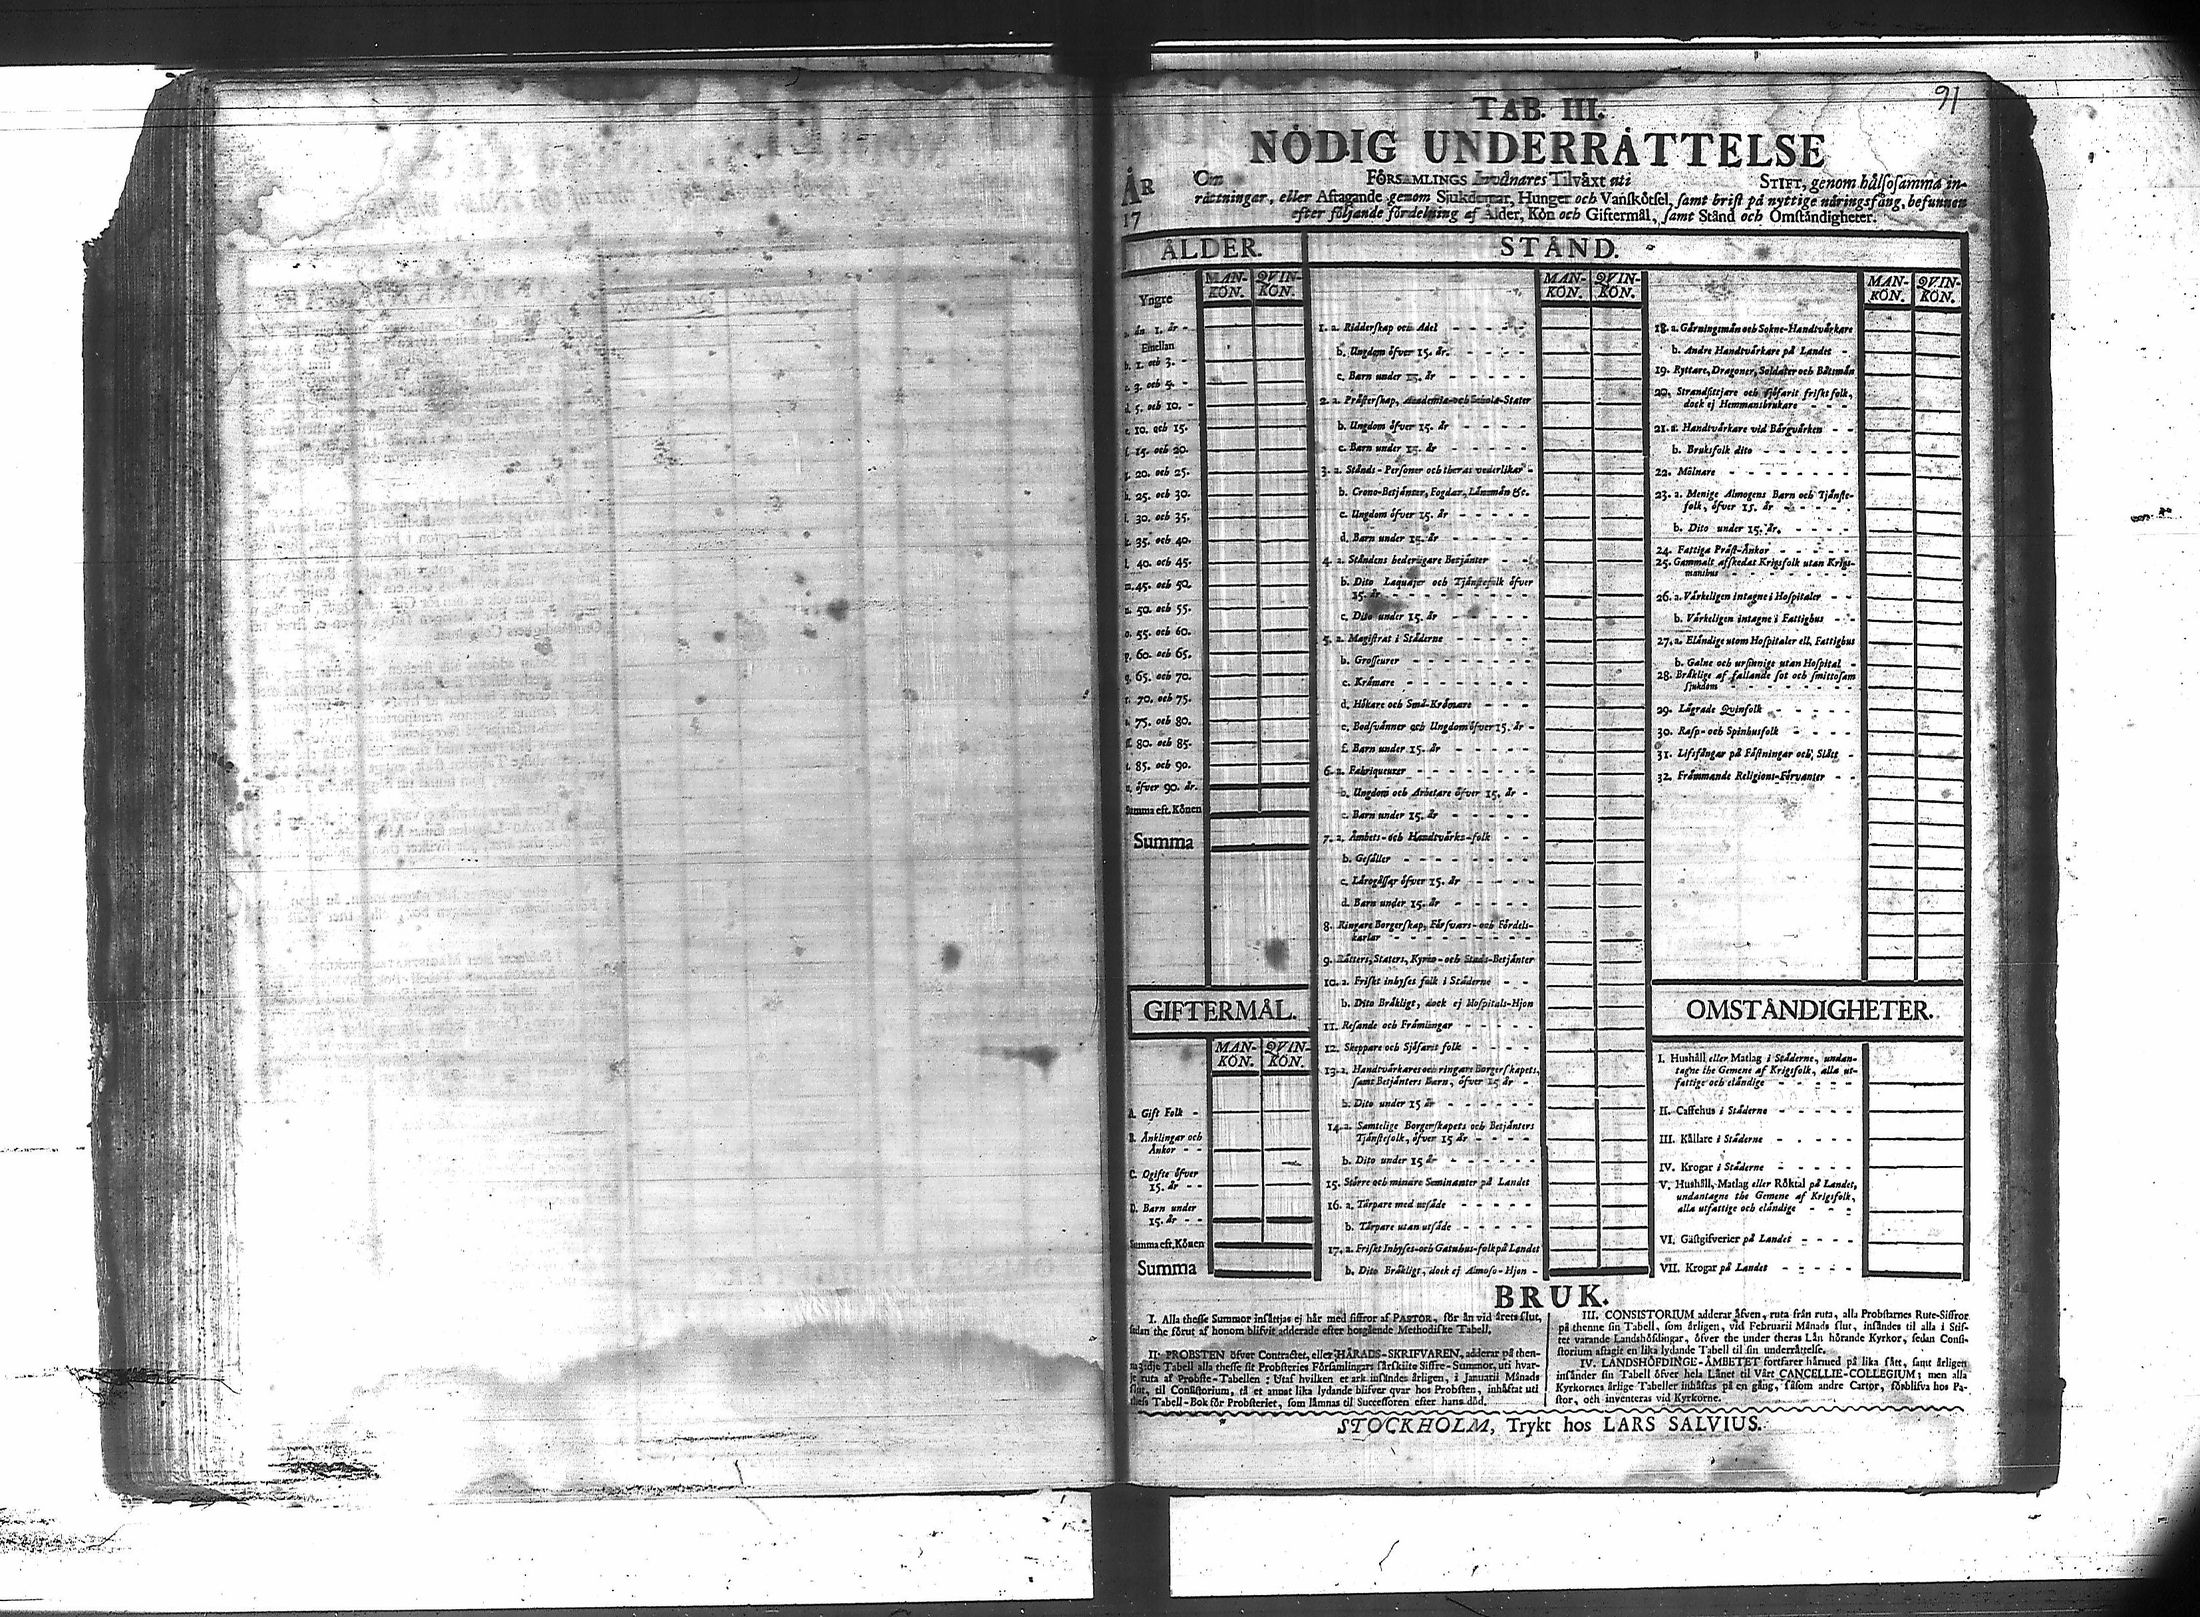 91
TAB. III.
NÖDIG UNDERRÄTTELSE
ÅR
17
Om FÖRSAMLINGS Invånares Tilväxt uti STIFT, genom hälsosamma in-
rättningar, eller Aftagande genom Sjukdomar, Hunger och Vanskötsel, samt brist på nyttige näringsfång, befunnen
efter följande fördelning af Ålder, Kön och Giftermål, samt Stånd och Omständigheter.
ÅLDER.
MAN-
KÖN.
QVIN-
KÖN.
Yngre
a. än 1. år -
Emellan
b. 1. och 3. -
c. 3. och 5. -
d. 5. och 10. -
e. 10. och 15.
f. 15. och 20.
g. 20. och 25.
h. 25. och 30.
i. 30. och 35.
k. 35. och 40.
l. 40. och 45.
m. 45. och 50.
n. 50. och 55.
o. 55. och 60.
p. 60. och 65.
q. 65. och 70.
r. 70. och 75.
s. 75. och 80.
ſſ. 80. och 85.
t. 85. och 90.
u. öfver 90. år.
Summa eft. Könen
Summa
GIFTERMÅL.
MAN-
KÖN.
QVIN-
KÖN.
A. Gift Folk -
B. Änklingar och
Änkor - -
C. Ogifte öfver
15. år - -
D. Barn under
15. år - -
Summa eft. Könen
Summa
STÅND.
MAN-
KÖN.
QVIN-
KÖN.
1. a. Ridderskap och Adel - - - -
b. Ungdom öfver 15. år. - - - -
c. Barn under 15. år - - - -
2. a. Prästerskap, Academiæ-och Schola-Stater
b. Ungdom öfver 15. år - - - -
c. Barn under 15. år - - - -
3. a. Stånds-Personer och theras vederlikar -
b. Crono-Betjänter, Fogdar, Länsmän &c.
c. Ungdom öfver 15. år - - - -
d. Barn under 15. år - - - -
4. a. Ståndens hederligare Betjänter - -
b. Dito Laquajer och Tjänstefolk öfver
15. år - - - - - - -
c. Dito under 15. år - - - -
5. a. Magistrat i Städerne - - - -
b. Grosseurer - - - - - -
c. Krämare - - - - - -
d. Hökare och Små-Krämare - - -
e. Bodsvänner och Ungdom öfver 15. år -
f. Barn under 15. år - - - -
6. a. Fabriqueurer - - - - - -
b. Ungdom och Arbetare öfver 15. år -
c. Barn under 15. år - - - -
7. a. Ämbets-och Handtvärks-folk - -
b. Gesäller - - - - - -
c. Lärogåssar öfver 15. år - - - -
d. Barn under 15. år - - - -
8. Ringare Borgerskap, Försvars-och Fördels-
karlar - - - - - - -
9. Rätters, Staters, Kyrko-och Stads-Betjänter
10. a. Friskt inhyses folk i Städerne - -
b. Dito Bräkligt, dock ej Hospitals-Hjon
11. Resande och Främlingar - - - -
12. Skeppare och Sjöfarit folk - - - -
13. a. Handtvärkares och ringare Borgerskapets,
samt Betjänters Barn, öfver 15 år -
b. Dito under 15 år - - - -
14. a. Samtelige Borgerskapets och Betjänters
Tjänstefolk, öfver 15 år - - - -
b. Dito under 15 år - - - -
15. Större och mindre Seminanter på Landet
16. a. Tårpare med utsäde - - - -
b. Tårpare utan utsäde - - - -
17. a. Friskt Inhyses-och Gatuhus-folk på Landet
b. Dito Bräkligt, dock ej Almoso-Hjon -
MAN-
KÖN.
QVIN-
KÖN.
18. a. Gärningsmän och Sokne-Handtvärkare
b. Andre Handtvärkare på Landet -
19. Ryttare, Dragoner, Soldater och Båtsmän
20. Strandsittjare och sjöfarit friskt folk,
dock ej Hemmansbrukare - - -
21. a. Handtvärkare vid Bärgvärken - -
b. Bruksfolk dito - - - -
22. Mölnare - - - - - -
23. a. Menige Almogens Barn och Tjänste-
folk, öfver 15. år - - - -
b. Dito under 15. år. - - - -
24. Fattiga Präst-Änkor - - - -
25. Gammalt afskedat Krigsfolk utan Krigs-
manshus - - - - - -
26. a. Värkeligen intagne i Hospitaler - -
b. Värkeligen intagne i Fattighus - -
27. a. Eländige utom Hospitaler ell. Fattighus
b. Galne och ursinnige utan Hospital -
28. Bräklige af fallande sot och smittosam
sjukdom - - - - - -
29. Lägrade Qvinfolk - - - -
30. Rasp-och Spinhusfolk - - - -
31. Lifsfångar på Fästningar och Slått -
32. Främmande Religions-Förvanter - -
OMSTÄNDIGHETER.
I. Hushåll eller Matlag i Städerne, undan-
tagne the Gemene af Krigsfolk, alla ut-
fattige och eländige - - - -
II. Caffehus i Städerne - - - -
III. Källare i Städerne - - - -
IV. Krogar i Städerne - - - -
V. Hushåll, Matlag eller Röktal på Landet,
undantagne the Gemene af Krigsfolk,
alla utfattige och eländige - - -
VI. Gästgifverier på Landet - - - -
VII. Krogar på Landet - - - -
BRUK.
I. Alla thesse Summor insättjas ej här med siffror af PASTOR, för än vid årets slut,
sedan the förut af honom blifvit adderade efter hosgående Methodiske Tabell.
II. PROBSTEN öfver Contractet, eller HÄRADS-SKRIFVAREN, adderar på then-
na idje Tabell alla thesse sit Probsteries Församlingars särskilte Siffre-Summor, uti hvar-
je ruta af Probste-Tabellen: Utaf hvilken et ark insändes årligen, i Januarii Månads
slut, til Consistorium, tå et annat lika lydande blifver qvar hos Probsten, inhäftat uti
thess Tabell-Bok för Probsteriet, som lämnas til Successoren efter hans död.
III. CONSISTORIUM adderar äfven, ruta från ruta, alla Probstarnes Rute-Siffror
på thenne sin Tabell, som årligen, vid Februarii Månads slut, insändes til alla i Stif-
tet varande Landshöfdingar, öfver the under theras Län hörande Kyrkor, sedan Consi-
storium aftagit en lika lydande Tabell til sin underrättelse.
IV. LANDSHÖFDINGE-ÄMBETET fortfarer härmed på lika sätt, samt årligen
insänder sin Tabell öfver hela Länet til Vårt CANCELLIE-COLLEGIUM; men alla
Kyrkornes årlige Tabeller inhäftas på en gång, såsom andre Cartor, förblifva hos Pa-
stor, och inventeras vid Kyrkorne.
STOCKHOLM, Trykt hos LARS SALVIUS.